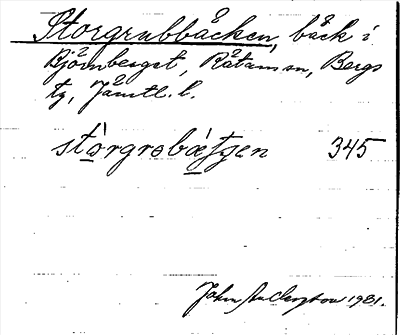 Storgrubbåcken, bäck i
Björnberget, Rätansn, Bergs
tg, Jämtl. l.
stòrgrobæ̀ʃtʃen 345
John Anderzhow 1931.